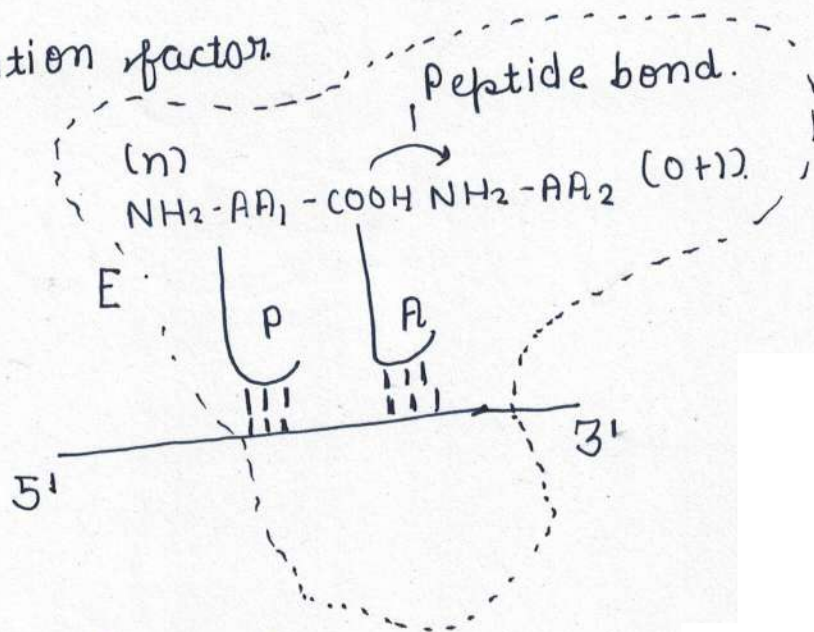 tion factor
Peptide bond.
(n)
NH2-AA1-COOH NH2-AA2 (0+1).
E
P
A
5'
3'